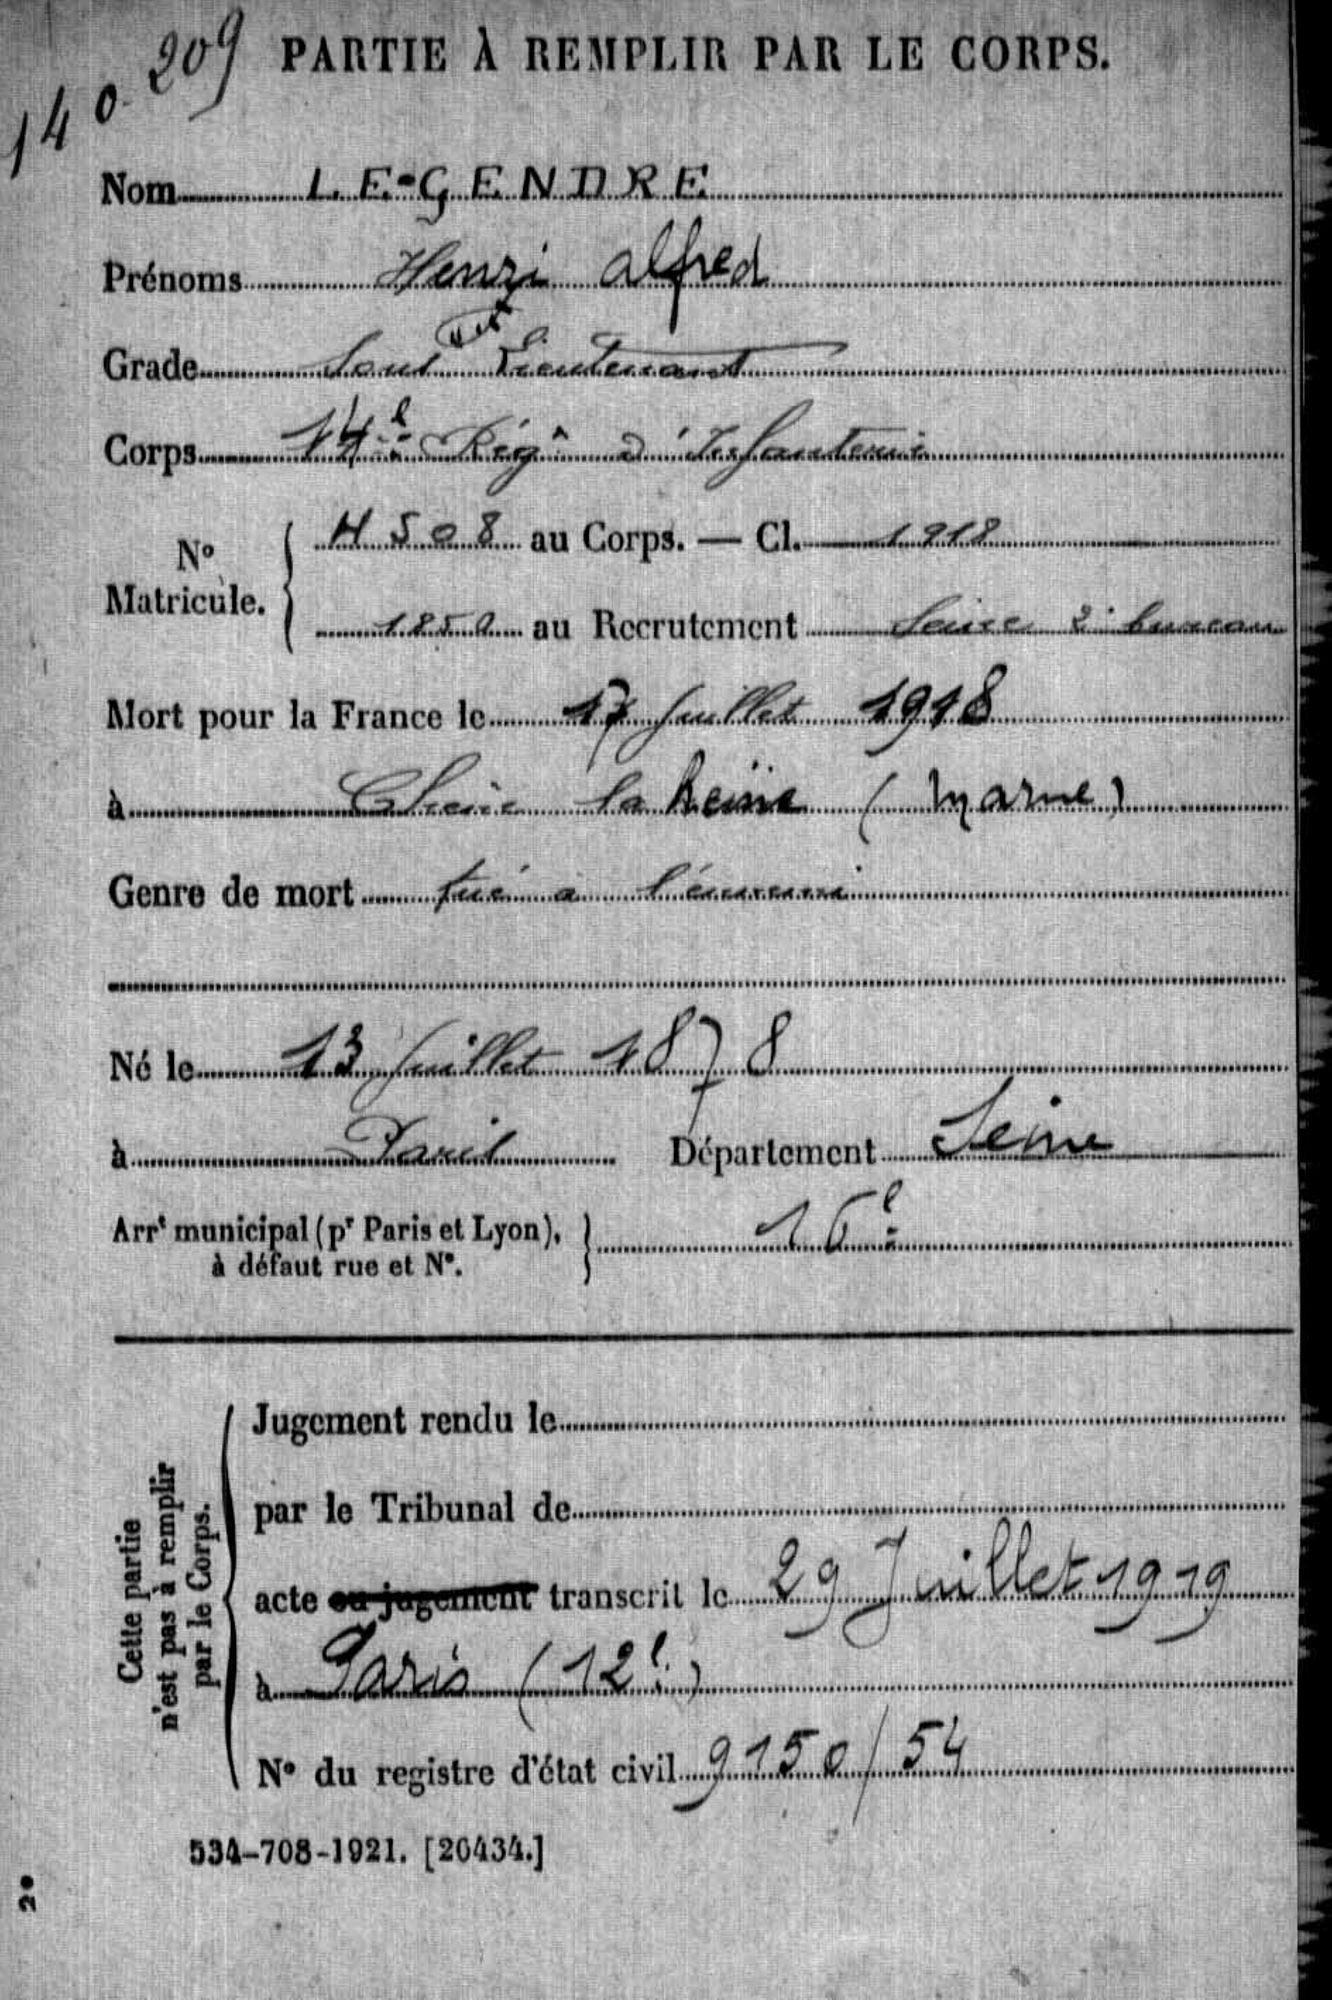 140.209
PARTIE À REMPLIR PAR LE CORPS.
Nom LE-GENDRE
Prénoms Henri Alfred
Grade Sous Lieutenant
Corps 14e Régt d'Infanterie
No Matricule. H 508 au Corps. — Cl. 1918
1850 au Recrutement Seine 2e bureau
Mort pour la France le 17 Juillet 1918
à Chêne la Reine (Marne)
Genre de mort tué à l'ennemi
Né le 13 Juillet 1878
à Paris Département Seine
Arrt municipal (pr Paris et Lyon), 16e
à défaut rue et No.
Cette partie n'est pas à remplir par le Corps.
Jugement rendu le
par le Tribunal de
acte ou jugement transcrit le 29 Juillet 1919
à Paris (12e)
No du registre d'état civil 9150/54
534-708-1921. [26434.]
20